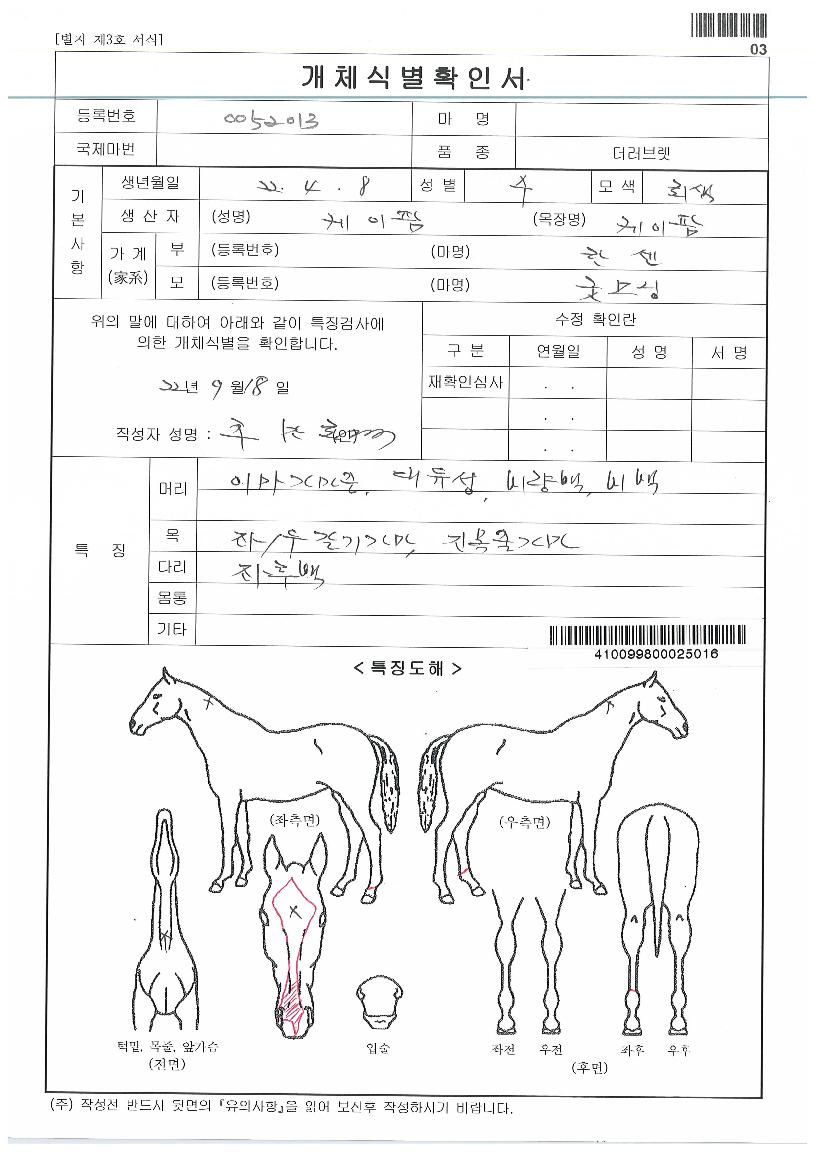 [별지 제3호 서식]
03
개체식별확인서
등록번호 0052013 마 명
국제마번 품 종 더러브렛
기본사항
생년월일 22. 4. 8 성별 수 모색 회색
생산자 (성명) 케이팜 (목장명) 케이팜
가계 (家系) 부 (등록번호) (마명) 한센
모 (등록번호) (마명)
위의 말에 대하여 아래와 같이 특징검사에
의한 개체식별을 확인합니다.
22년 9월 18일
작성자 성명 :
수정 확인란
구 분 연월일 성 명 서 명
재확인심사 . .
. .
. .
특 징
머리 이마가마중, 대유성, 비량백, 비백
목 좌/우갈기가마, 진목줄가마
다리 좌후백
몸통
기타
410099800025016
< 특징도해 >
(좌측면) (우측면)
턱밑, 목줄, 앞가슴
(전면)
입술
좌전 우전 좌후 우후
(후면)
(주) 작성전 반드시 뒷면의 『유의사항』을 읽어 보신후 작성하시기 바랍니다.